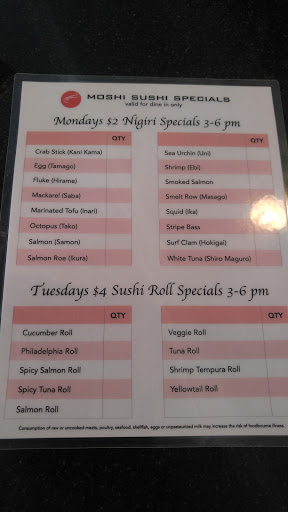 MOSHI SUSHI SPECIALS
valid for dine in only
Mondays $2 Nigiri Specials 3-6 pm
QTY
Crab Stick (Kani Kama)
Egg (Tamago)
Fluke (Hirame)
Mackarel (Saba)
Marinated Tofu (Inari)
Octopus (Tako)
Salmon (Samon)
Salmon Roe (Ikura)
QTY
Sea Urchin (Uni)
Shrimp (Ebi)
Smoked Salmon
Smelt Row (Masago)
Squid (Ika)
Stripe Bass
Surf Clam (Hokigai)
White Tuna (Shiro Maguro)
Tuesdays $4 Sushi Roll Specials 3-6 pm
QTY
Cucumber Roll
Philadelphia Roll
Spicy Salmon Roll
Spicy Tuna Roll
Salmon Roll
QTY
Veggie Roll
Tuna Roll
Shrimp Tempura Roll
Yellowtail Roll
Consumption of raw or uncooked meats, poultry, seafood, shellfish, eggs or unpasteurized milk may increase the risk of foodbourne illness.